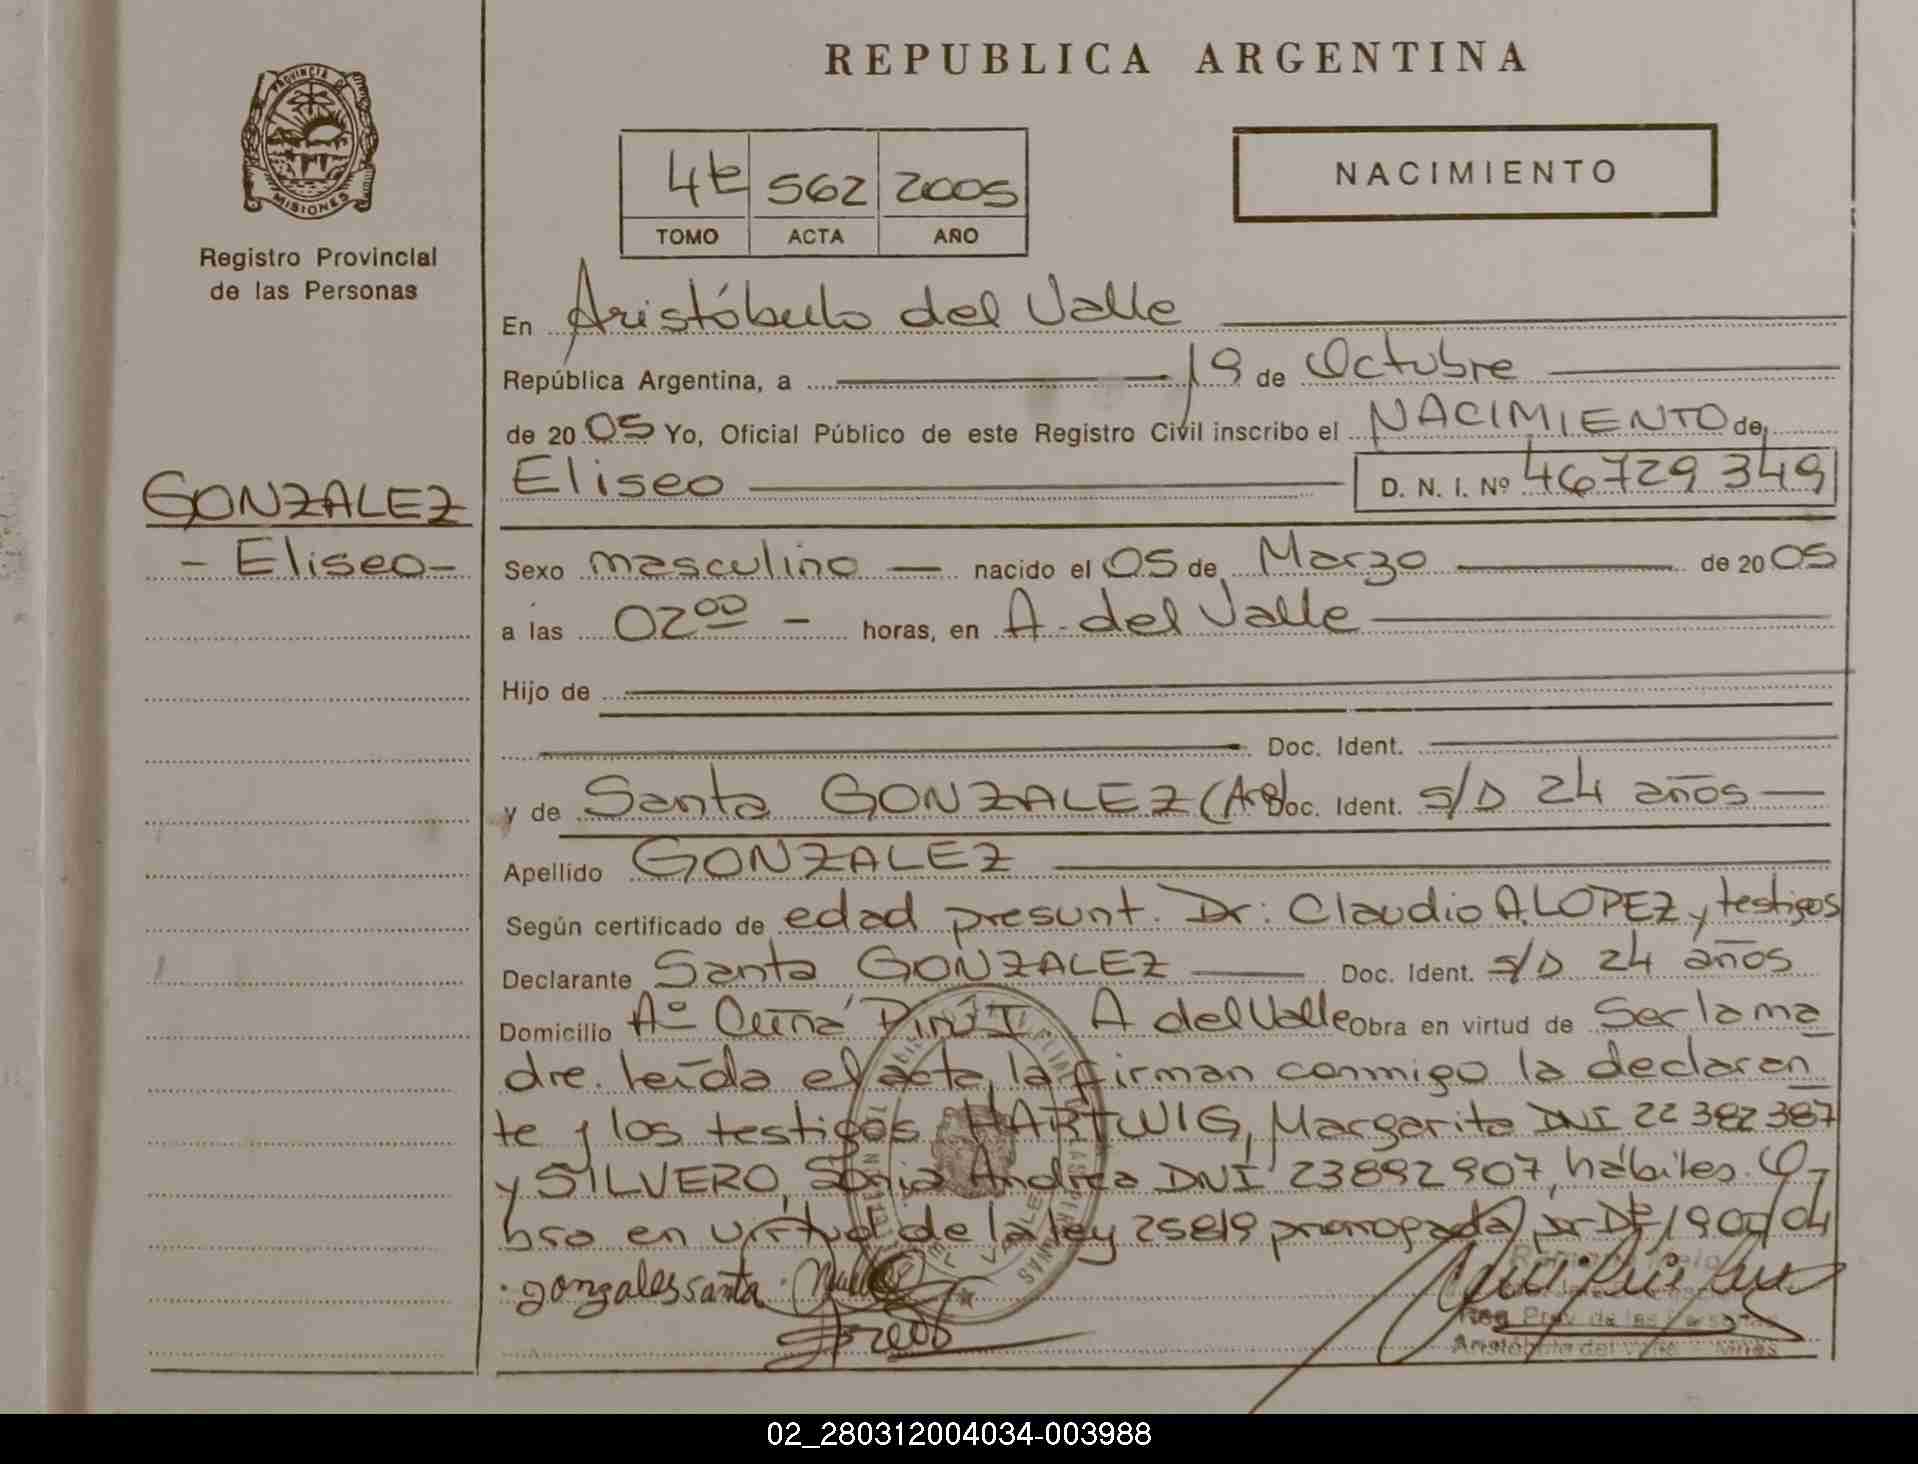 REPUBLICA ARGENTINA
PROVINCIA DE
MISIONES
Registro Provincial
de las Personas
4t 562 2005
TOMO ACTA AÑO
NACIMIENTO
En Aristóbulo del Valle
República Argentina, a 19 de Octubre
de 20 05 Yo, Oficial Público de este Registro Civil inscribo el NACIMIENTO de
GONZALEZ
- Eliseo -
Eliseo D. N. I. Nº 46729349
Sexo masculino nacido el 05 de Marzo de 20 05
a las 02 00 - horas, en A. del Valle
Hijo de
Doc. Ident.
y de Santa GONZALEZ (Arg) Doc. Ident. s/D 24 años
Apellido GONZALEZ
Según certificado de edad presunt. Dr: Claudio A. LOPEZ y testigos
Declarante Santa GONZALEZ Doc. Ident. s/D 24 años
Domicilio Aº Cuñá Pirú I A del Valle Obra en virtud de Ser la ma
dre. leída el acta, la firman conmigo la declaran
te y los testigos HARTWIG, Margarita DNI 22 382 387
y SILVERO, Sonia Andrea DNI 23892907, hábiles. O
bro en virtud de la ley 25819 prorrogada por Dto 1900/04
gonzales santa
Reg. Prov. de las Personas
Aristóbulo del Valle - Mnes
02_280312004034-003988